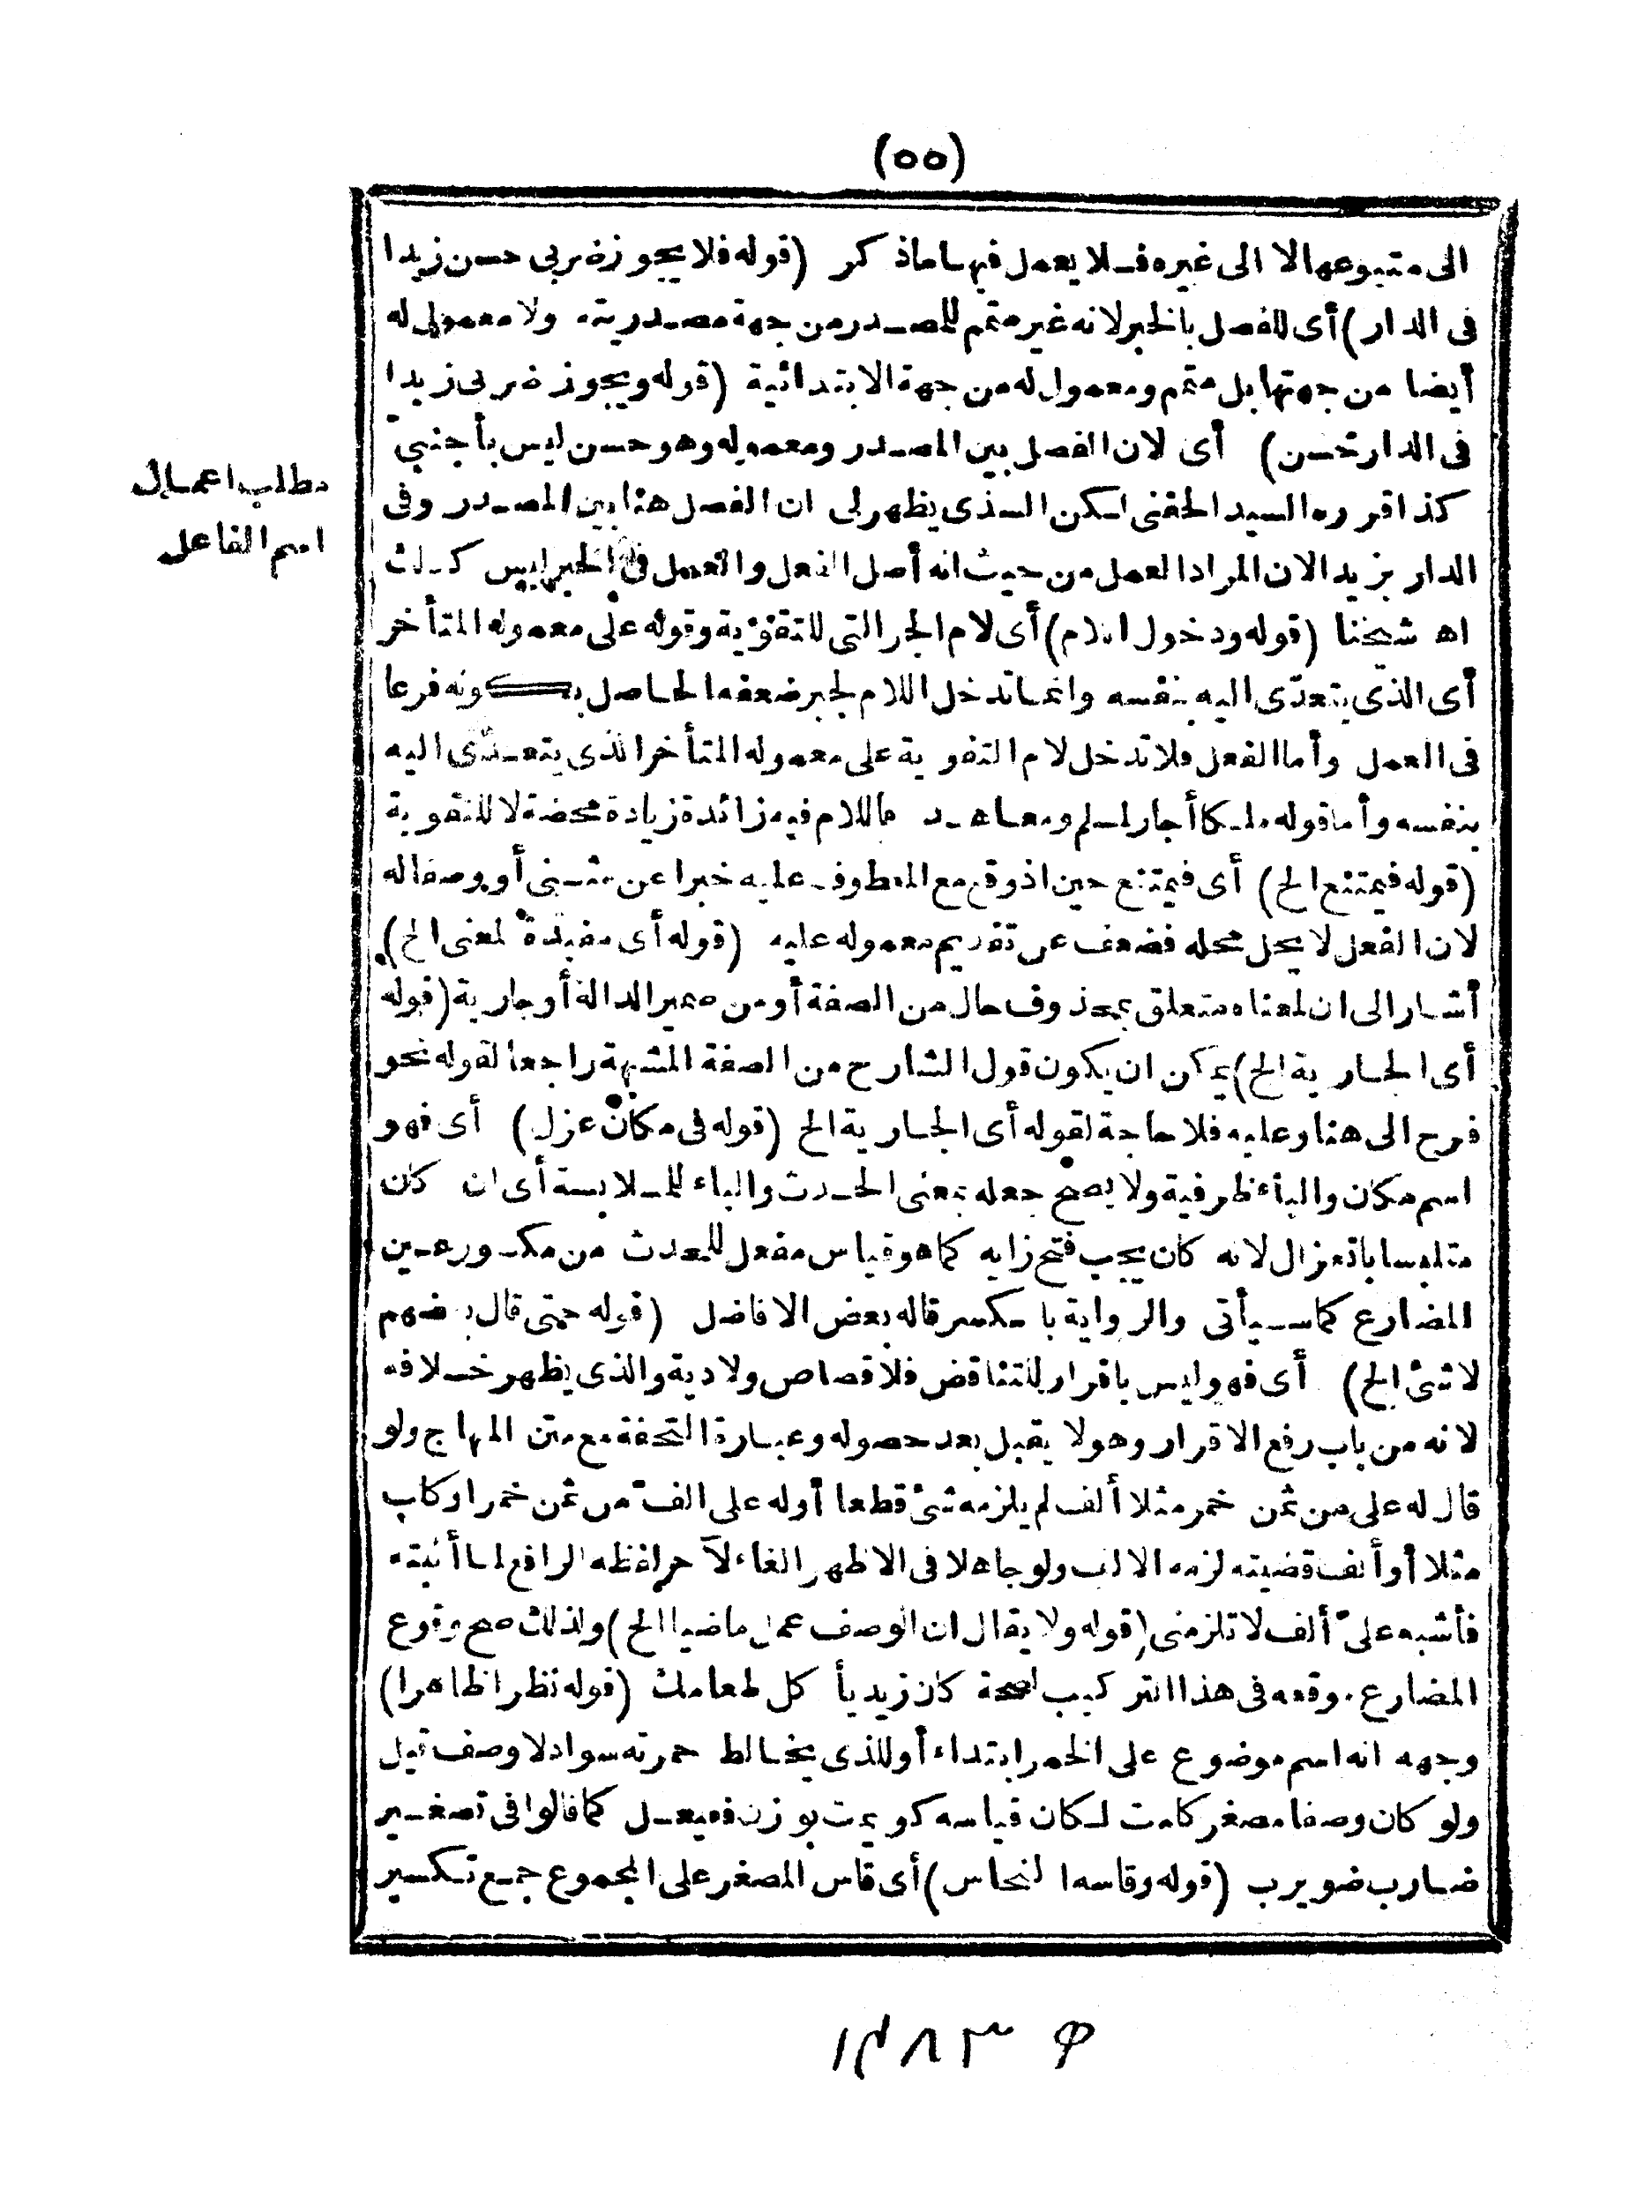 (٥٥)
الى متبوعها لا الى غيره فلا يعمل فيها ماذكر (قوله فلا يجوز ضربى حسن زيدا
فى الدار) أى للفصل بالخبر لانه غير متمم للمصدر من جهة مصدريته ولا معمول له
أيضا من جهتها بل متمم ومعمول له من جهة الابتدائية (قوله ويجوز ضربى زيدا
فى الدار حسن) أى لان الفصل بين المصدر ومعموله وهو حسن ليس بأجنبىّ
مطلب اعمال
اسم الفاعل
كذا قرره السيد الحفنى لكن الذى يظهر لى ان الفصل هنا بين المصدر وفى
الدار بزيد الان المراد العمل من حيث انه أصل الفعل والعمل فى الخبر ليس كذلك
اه شيخنا (قوله ودخول اللام) أى لام الجر التى للتقوية وقوله على معموله المتأخر
أى الذى يتعدّى اليه بنفسه وانما تدخل اللام لجبر ضعفه الحاصل بكونه فرعا
فى العمل وأما الفعل فلا تدخل لام التقوية على معموله المتأخر الذى يتعدّى اليه
بنفسه وأما قوله ملكا أجار لمسلم ومعاهد فاللام فيه زائدة زيادة محضة لا للتقوية
(قوله فيمتنع الخ) أى فيمتنع حين اذ وقع مع المعطوف عليه خبرا عن مثنى أو وصفا له
لان الفعل لا يحل محله فضعف عن تقديم معموله عليه (قوله أى مفيدة لمعنى الخ)
أشار الى ان لمعناه متعلق بمحذوف حال من الصفة أو من ضمير الدالة أو جارية (قوله
أى الجارية الخ) يمكن ان يكون قول الشارح من الصفة المشبهة راجعا لقوله نحو
فرح الى هنا وعليه فلا حاجة لقوله أى الجارية الخ (قوله فى مكان عزل) أى فهو
اسم مكان والباء ظرفية ولا يصح جعله بمعنى الحدث والباء للملابسة أى ان كان
متلبسا بانعزال لانه كان يجب فتح زايه كما هو قياس مفعل للحدث من مكسور عين
المضارع كما سيأتى والرواية بالكسر قاله بعض الافاضل (قوله حتى قال بعضهم
لا شئ الخ) أى فهو ليس باقرار للتناقض فلا قصاص ولا دية والذى يظهر خلافه
لانه من باب رفع الاقرار وهو لا يقبل بعد حصوله وعبارة التحفة مع متن المنهاج ولو
قال له على من ثمن خمر مثلا ألف لم يلزمه شئ قطعا أوله على الف من ثمن خمر او كلب
مثلا أو ألف قضيته لزمه الالف ولو جاهلا فى الاظهر الغاء لآخر لفظه الرافع لما أثبته
فأشبه علىّ ألف لا تلزمنى (قوله ولا يقال ان الوصف عمل ماضيا الخ) ولذلك صح وقوع
المضارع موقعه فى هذا التركيب لصحة كان زيد يأكل طعامك (قوله نظرا ظاهرا)
وجهه انه اسم موضوع على الخمر ابتداء أو للذى يخالط حمرته سواد لا وصف قيل
ولو كان وصفا مصغر كامت لكان قياسه كويمت بوزن فعيعل كما قالوا فى تصغير
ضارب ضويرب (قوله وقاسه النحاس) أى قاس المصغر على المجموع جمع تكسير